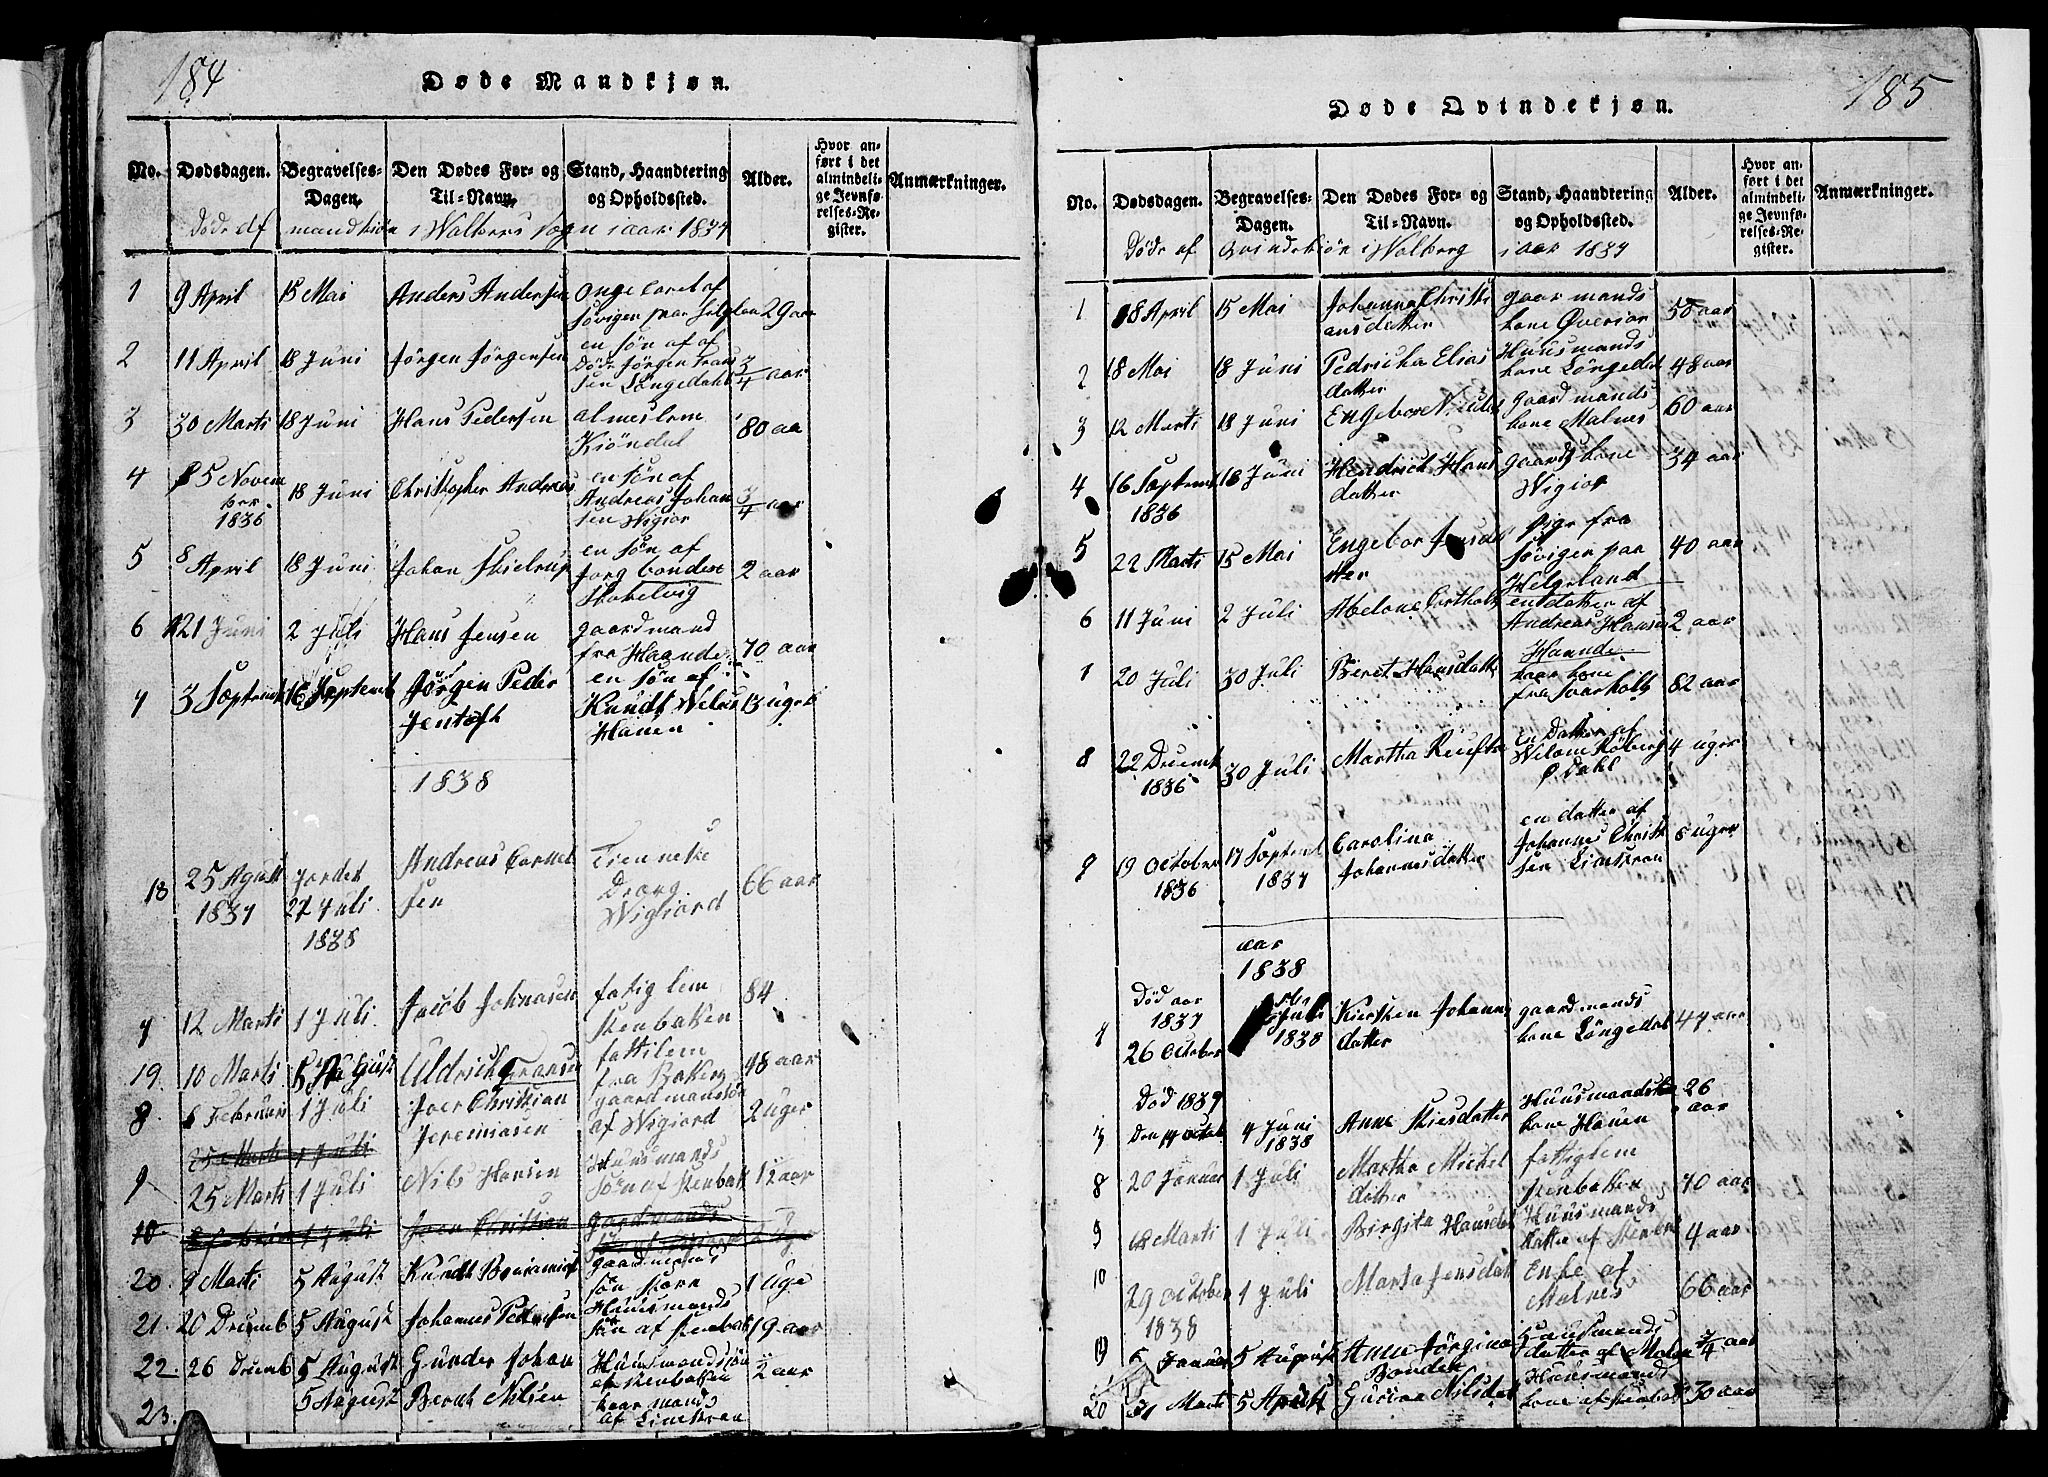 184
Døde Mandkjøn.
No. Dødsdagen. Begravelses-Dagen. Den Dødes For- og Til-Navn. Stand, Haandtering og Opholdssted. Alder. Hvor anført i det almindelige Jevnførelses-Register. Anmærkninger.
Døde af mandkiøn i Walbers sogn i aar 1837
1 9 April 15 Mai Anders Andersen 29 aar
2 11 April 18 Juni Jørgen Jørgensen en søn af Døde Jørgen Fransen Længedahl 3/4 aar
3 30 Marts 18 Juni Hans Pedersen almeslem Kiøndal 80 aa
4 5 November 1836 18 Juni Christopher Andreas en søn af Andreas Johansen Wigior 3/4 aar
5 8 April 18 Juni Johan Skielrup en søn af 2 aar
6 21 Juni 2 Juli Hans Jensen gaardmand fra Haande 70 aar
7 3 Septemb 16 Septemb Jørgen Peder Jentoft en søn af Hauen 13 uger
1838
18 25 Agust 1837 Jordet 27 Juli 1838 Andreas Cornelsen Tienneste Dræng Wigiord 66 aar
7 12 Marts 1 Juli Jacob Johnasen fatiglem Stenbakken 84
19 10 Marts 5 August Uldrich Fransen fattilem fra Bakken 48 aar
8 6 Februari 1 Juli Joer Christian Jeremiasen gaardmandssøn af Wigiord 2 uger
25 Marts 1 Juli
9 25 Marts 1 Juli Nils Hansen Huusmands søn af Stenbak 12 aar
10 1 Juli Joer Christian gardmands
20. 9 Marts 5 August Kundt gaardmands søn 1 Uge
21. 20 Decemb 5 August Johannes Pedersen Huusmands søn af Stenbak 19 aar
22. 26 Decemb 5 August Gunder Johan Huusmandssøn af Stenbakken 2 aar
23. 5 August Bernt Nilsen af Limstran
185
Døde Qvindekjøn.
No. Dødsdagen. Begravelses-Dagen. Den Dødes For- og Til-Navn. Stand, Haandtering og Opholdssted. Alder. Hvor anført i det almindelige Jevnførelses-Register. Anmærkninger.
Døde af Qvindekiøn i Walberg i aar 1837
1 8 April 15 Mai Johanna Christiansdatter gaarmands kone Øverior 50 aar
2 18 Mai 18 Juni Pedricka Eliasdatter Huusmands kone Længedal 48 aar
3 12 Marts 18 Juni Engebor Nilsd gaardmands kone Malnes 60 aar
4 16 Septemb 1836 18 Juni Hendrich Hansdatter gaards kone Wigior 34 aar
5 22 Marts 15 Mai Engebor Jensdatter pige fra Søvigen paa Helgeland 40 aar
6 11 Juni 2 Juli Helene Bartholo en datter af Andreas Hansen Haande 2 aar
1 20 Juli 30 Juli Beret Hansdatte kone fra Svarholt 82 aar
8 22 Decemb 1836 30 Juli Martha en Datter af Dahl 4 uger
9 19 October 1836 17 Septemb 1837 Carolina Johannesdatter en datter af Johannes Christensen Limstran 6 uger
aar 1838
Død aar 1837
7 26 October Juli 1838 Kirsten Johannesdatter gaardmands kone Længedal 47 aar
Død 1839
3 Den 14 octob 4 Juni 1838 Anne Huusmands kone Hauen 26 aar
8 20 Januar 1 Juli Martha Micheldatter fattiglem Stenbakken 70 aar
9 Marts 1 Juli Birgita Hansdat Huusmands datter af Stenb 4 aar
10 29 October 1838 1 Juli Marta Jensdat Enke af Malnes 66 aar
19 6 Januar 5 August Anne Jørgina Huusmands datter af Malnes 3/4 aar
20 31 Marts 5 August Nilsdat Huusmands kone af Stenbak 30 aar